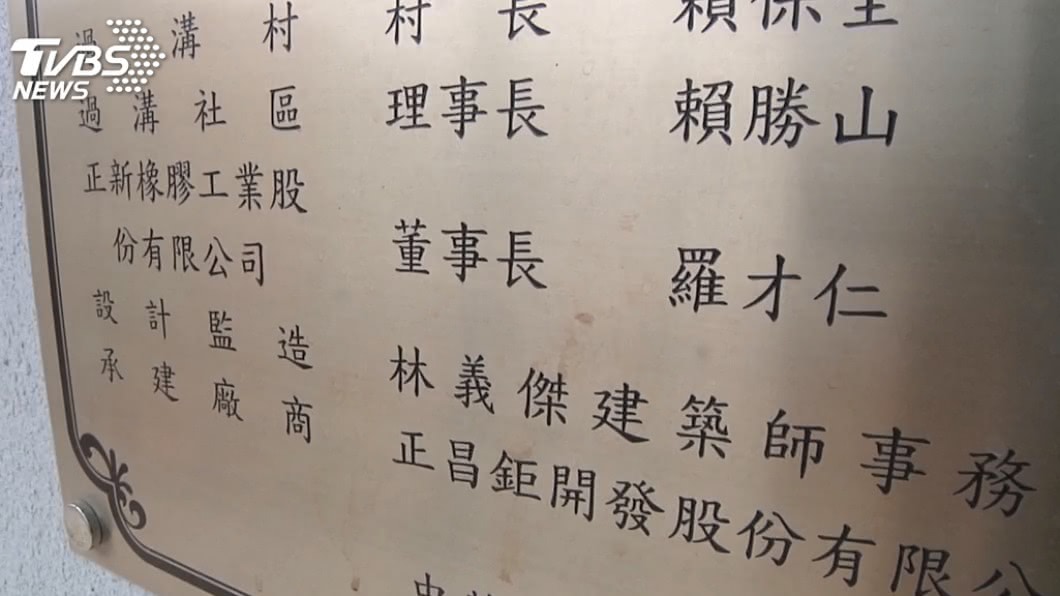 TVBS
NEWS
過溝村 村長 賴保
過溝社區 理事長 賴勝山
正新橡膠工業股
份有限公司 董事長 羅才仁
設計監造 林義傑建築師事務
承建廠商 正昌鉅開發股份有限公